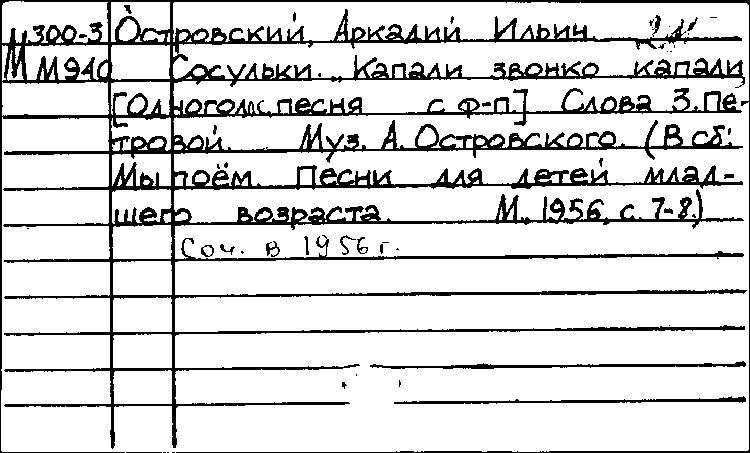 М 300-3 Островский, Аркадий Ильич.
М940 Сосульки. „Капали звонко капали,
[Одноголос. песня с ф-п.] Слова З. Пе-
тровой. Муз. А. Островского. (В сб.:
Мы поём. Песни для детей млад-
шего возраста. М., 1956, с. 7-8.)
Соч. в 1956 г.